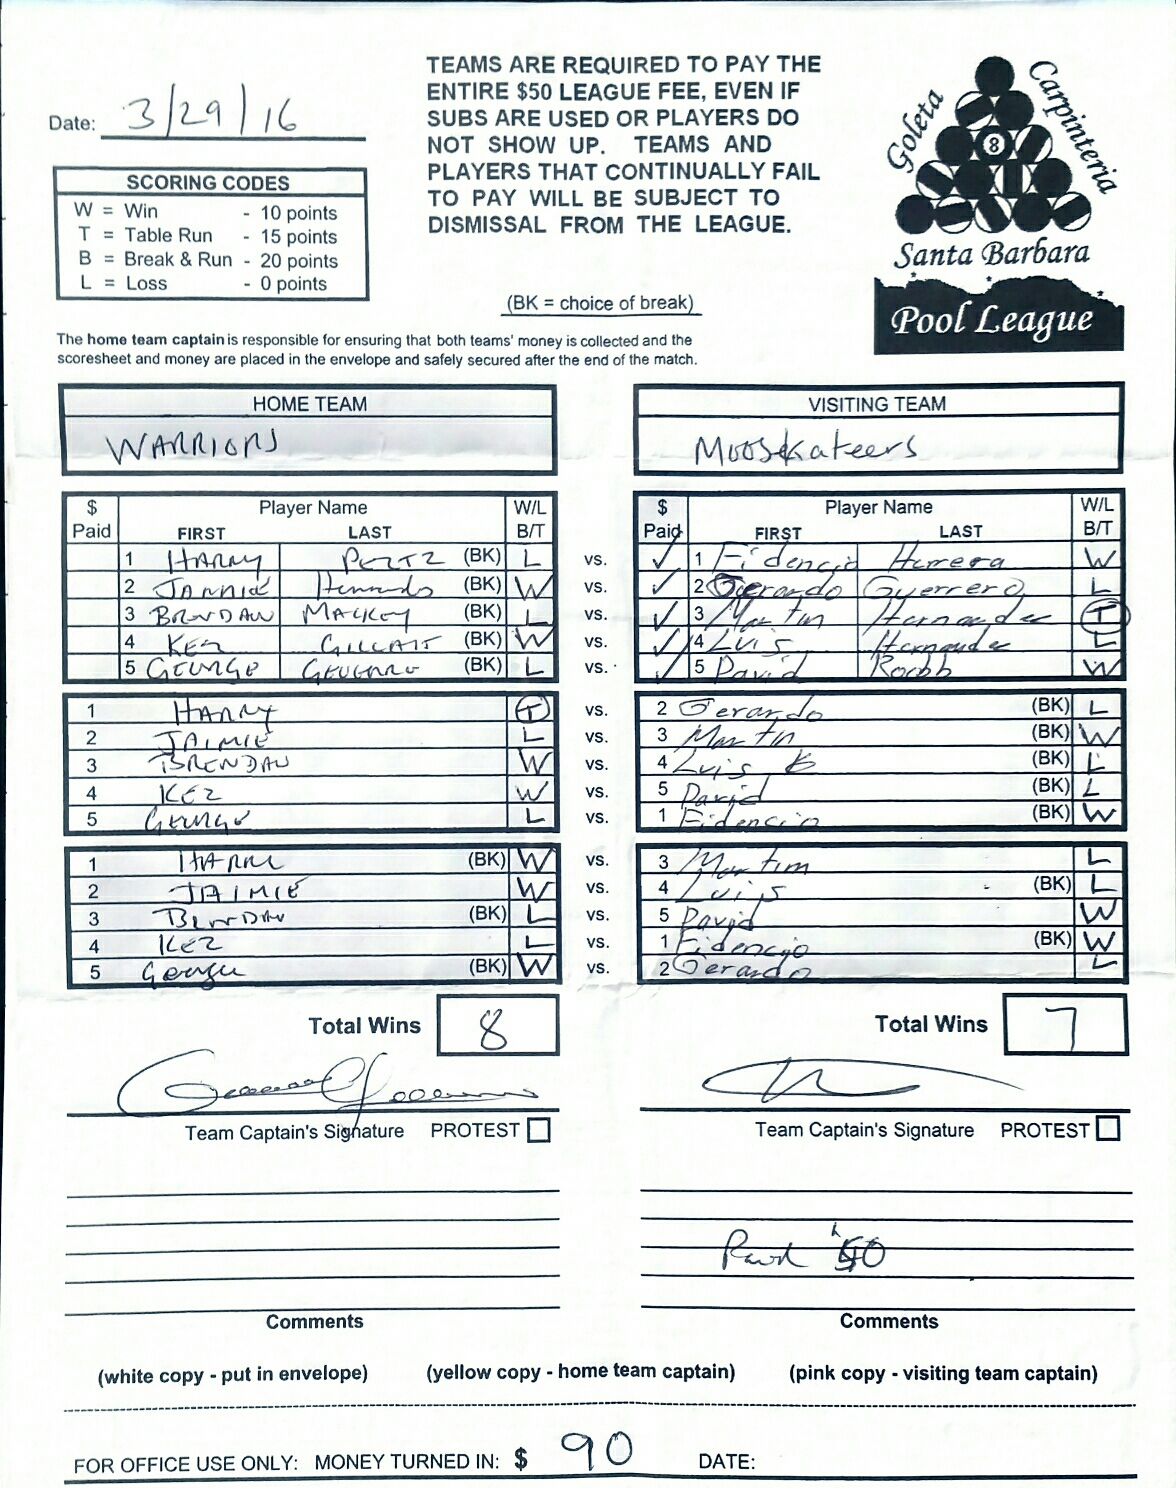 TEAMS ARE REQUIRED TO PAY THE
ENTIRE $50 LEAGUE FEE, EVEN IF
SUBS ARE USED OR PLAYERS DO
NOT SHOW UP. TEAMS AND
PLAYERS THAT CONTINUALLY FAIL
TO PAY WILL BE SUBJECT TO
DISMISSAL FROM THE LEAGUE.
Date: 3/29/16
Goleta
Carpinteria
8
Santa Barbara
Pool League
SCORING CODES
W = Win - 10 points
T = Table Run - 15 points
B = Break & Run - 20 points
L = Loss - 0 points
(BK = choice of break)
The home team captain is responsible for ensuring that both teams' money is collected and the
scoresheet and money are placed in the envelope and safely secured after the end of the match.
HOME TEAM VISITING TEAM
WARRIORS Mooskateers
$ Paid Player Name FIRST LAST W/L B/T $ Paid Player Name FIRST LAST W/L B/T
1 HARRY (BK) L vs. ✓ 1 Fidencio Herrera W
2 JANNIE (BK) W vs. ✓ 2 Gerardo Guerrero L
3 BRNDAN MACKEY (BK) L vs. ✓ 3 Martin Hernandez T
4 KEZ (BK) W vs. ✓ 4 Luis Hernandez L
5 GEORGE (BK) L vs. ✓ 5 David Robb W
1 HARRY T vs. 2 Gerardo (BK) L
2 JAIMIE L vs. 3 Martin (BK) W
3 BRENDAN W vs. 4 Luis (BK) L
4 KEZ W vs. 5 David (BK) L
5 GEORGE L vs. 1 Fidencio (BK) W
1 HARRY (BK) W vs. 3 Martin L
2 JAIMIE W vs. 4 Luis (BK) L
3 BRNDAN (BK) L vs. 5 David W
4 KEZ L vs. 1 Fidencio (BK) W
5 George (BK) W vs. 2 Gerardo L
Total Wins 8 Total Wins 7
Team Captain's Signature PROTEST Team Captain's Signature PROTEST
Paid
Comments Comments
(white copy - put in envelope) (yellow copy - home team captain) (pink copy - visiting team captain)
FOR OFFICE USE ONLY: MONEY TURNED IN: $ 90 DATE: